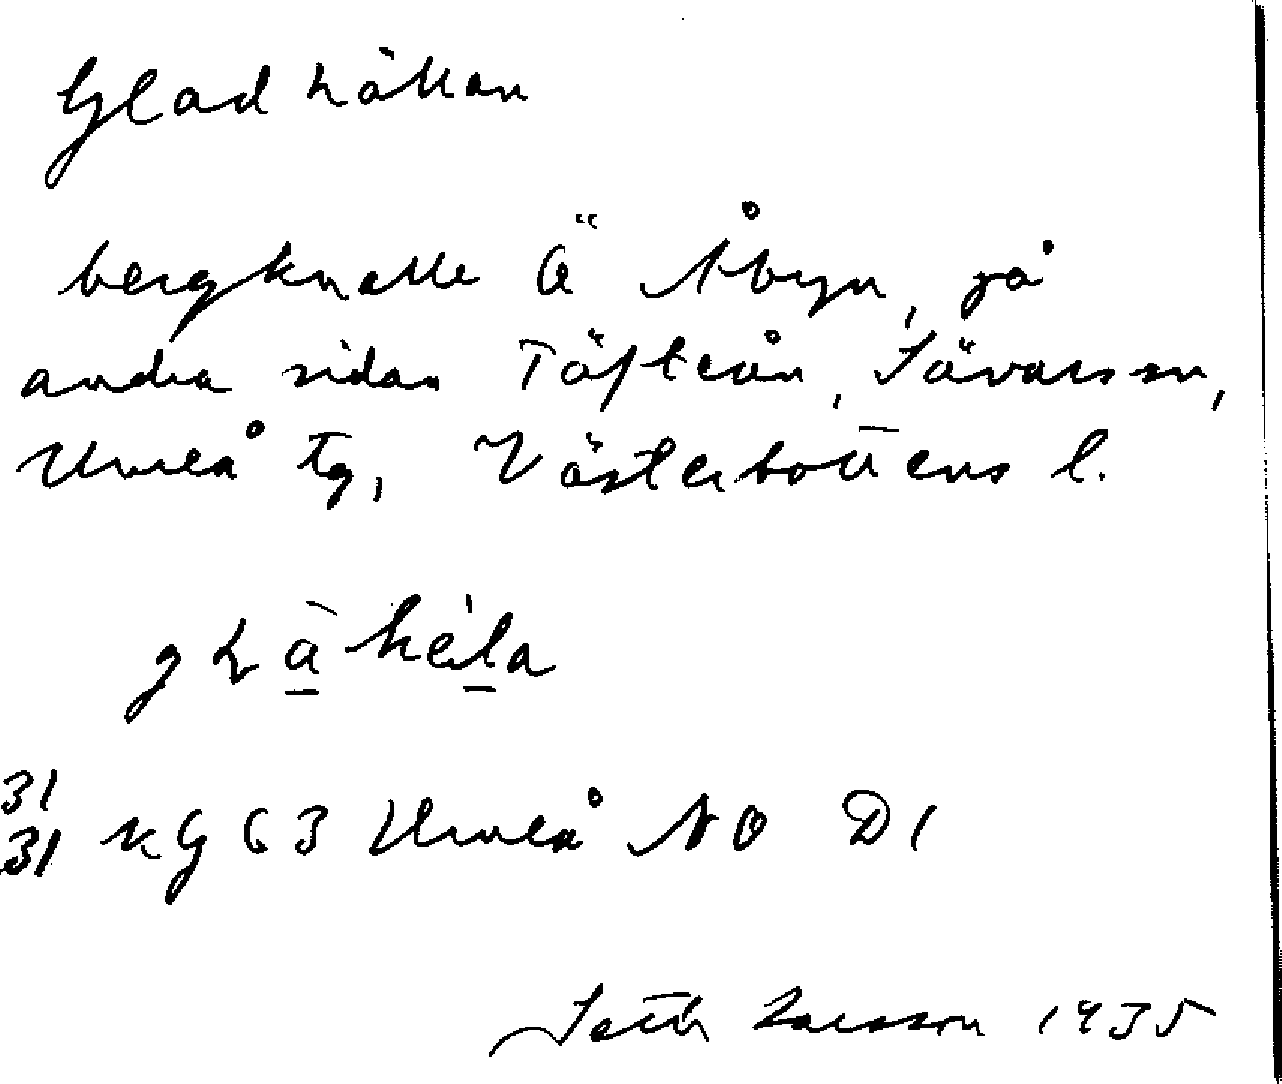 Gladhällan
bergknalle Ö Åbyn, på
andra sidan Täfteån, Sävars sn,
Umeå tg, Västerbottens l.
31
31 KG 63 Umeå NO D1
Seth Larsson 1935